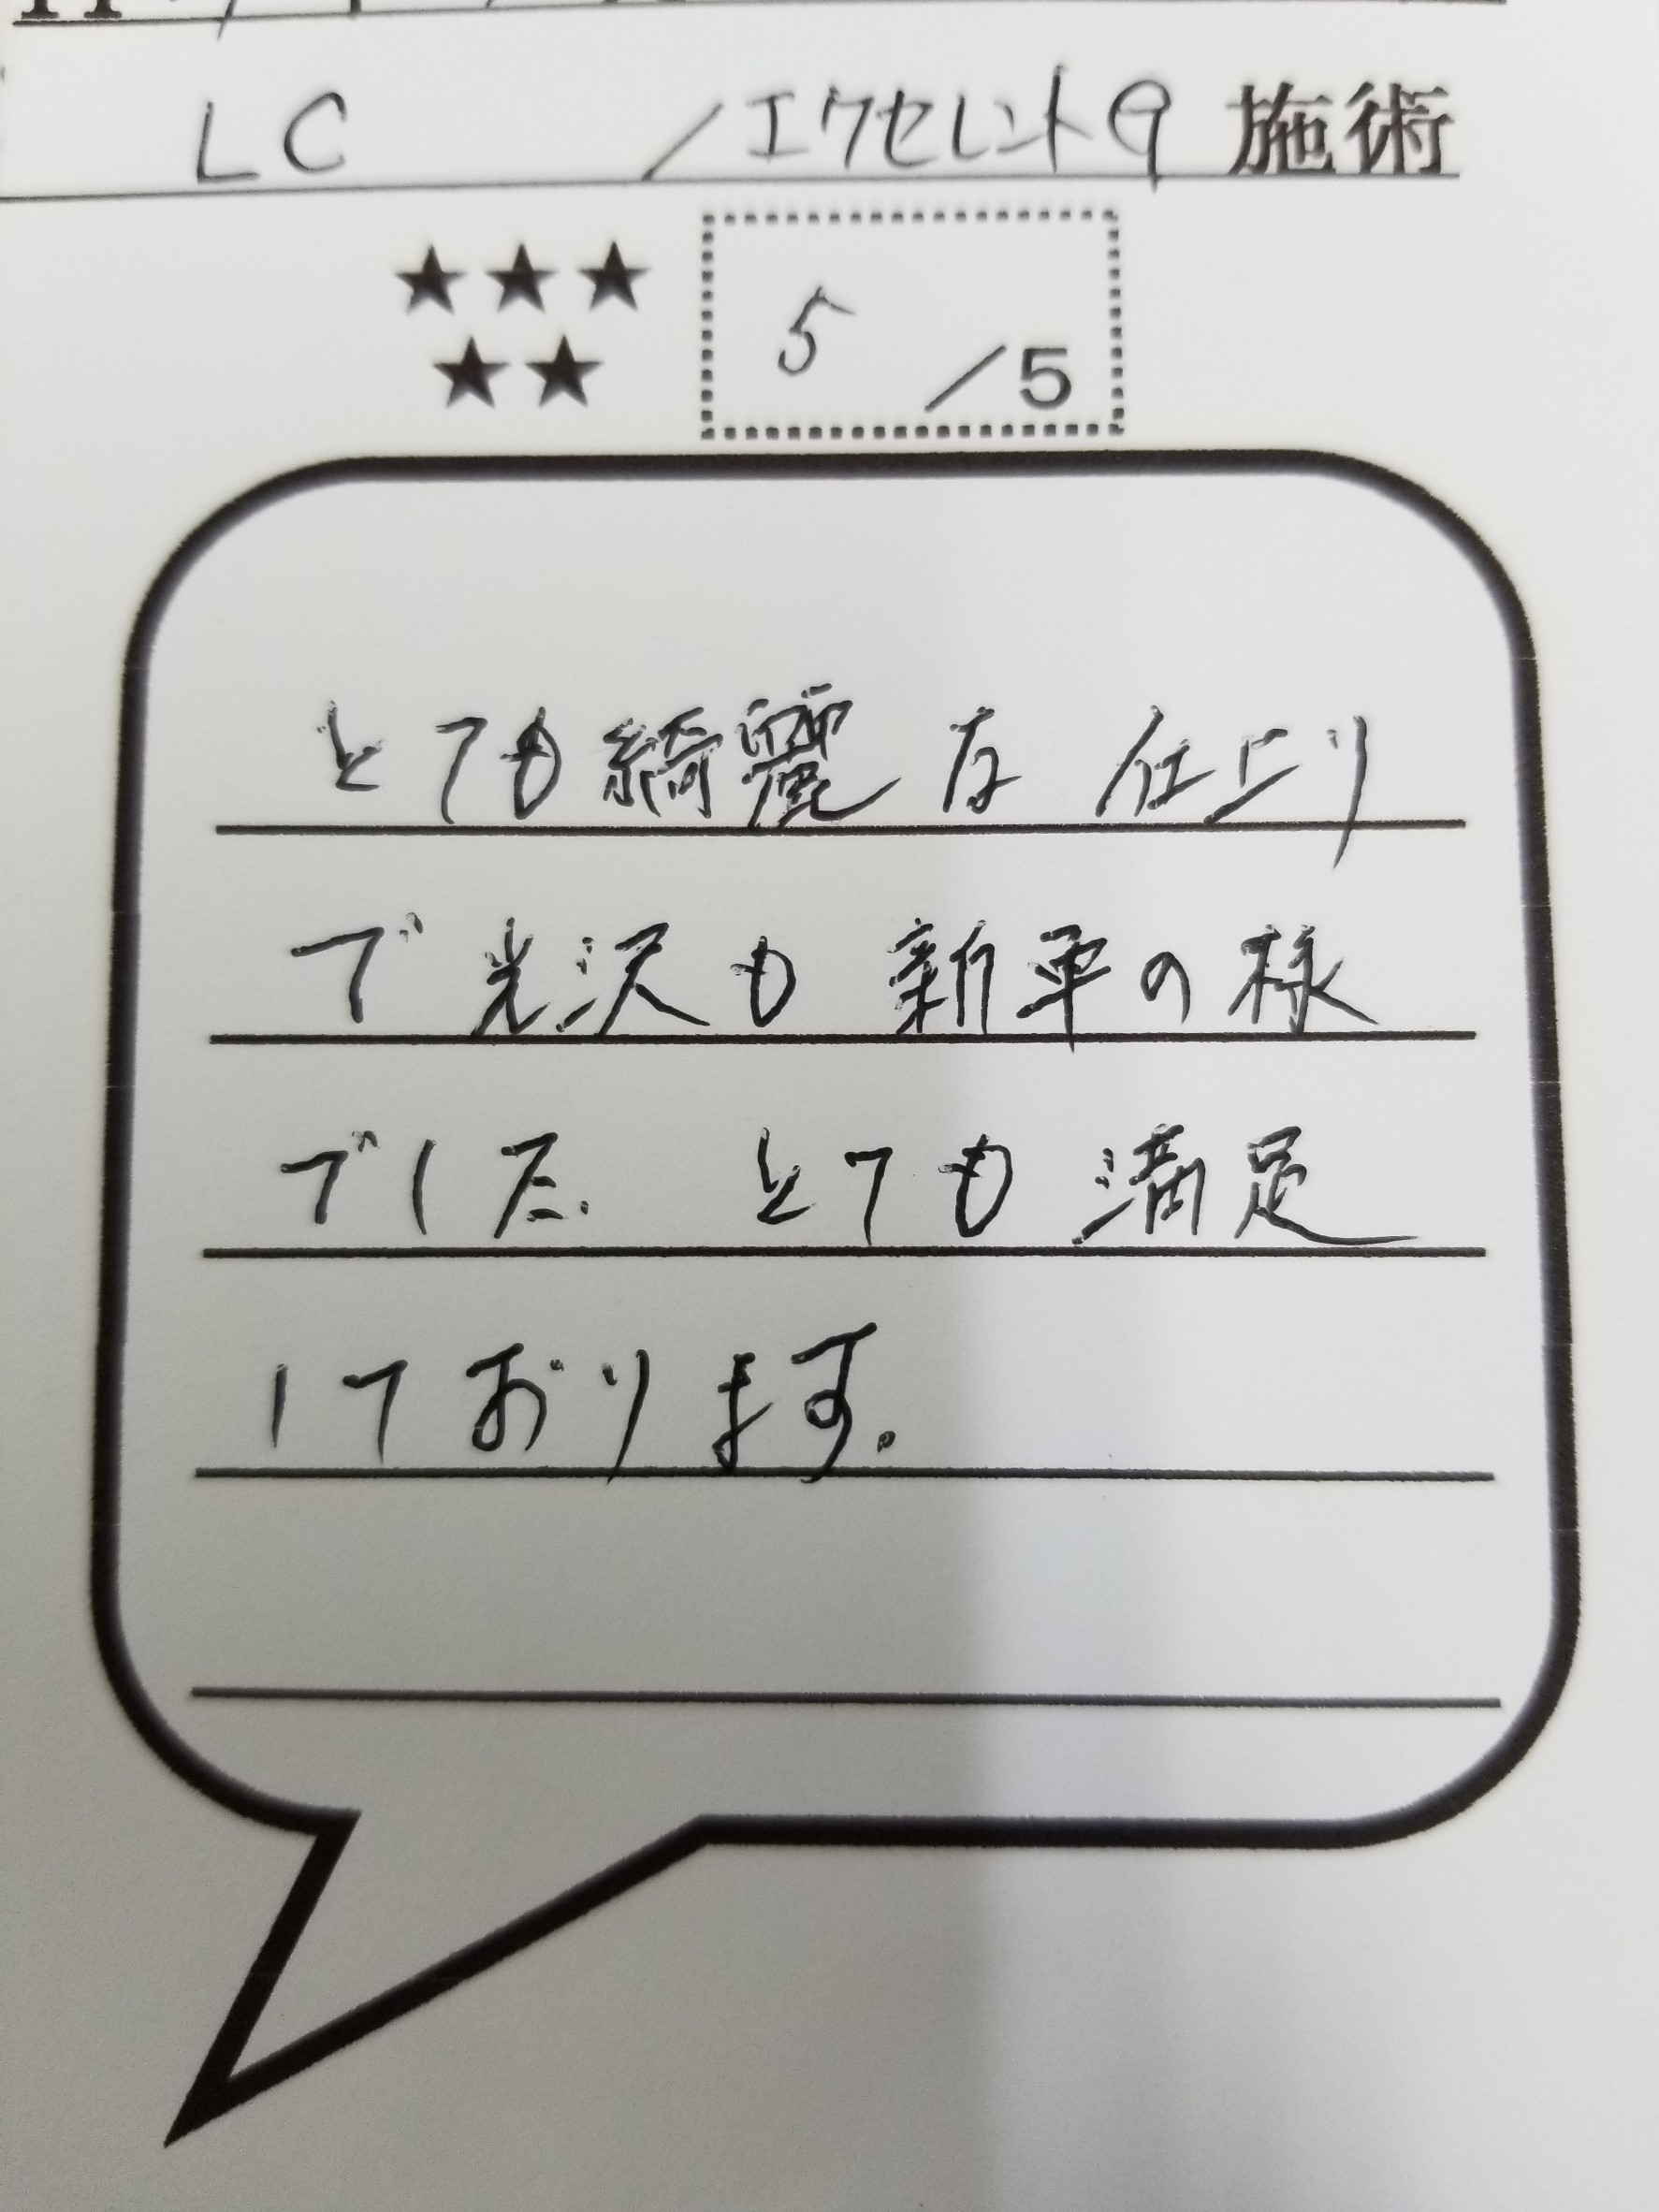 LC /エクセレントQ 施術
★★★
★★
5 /5
とても綺麗な仕上り
で光沢も新車の様
でした。とても満足
しております。